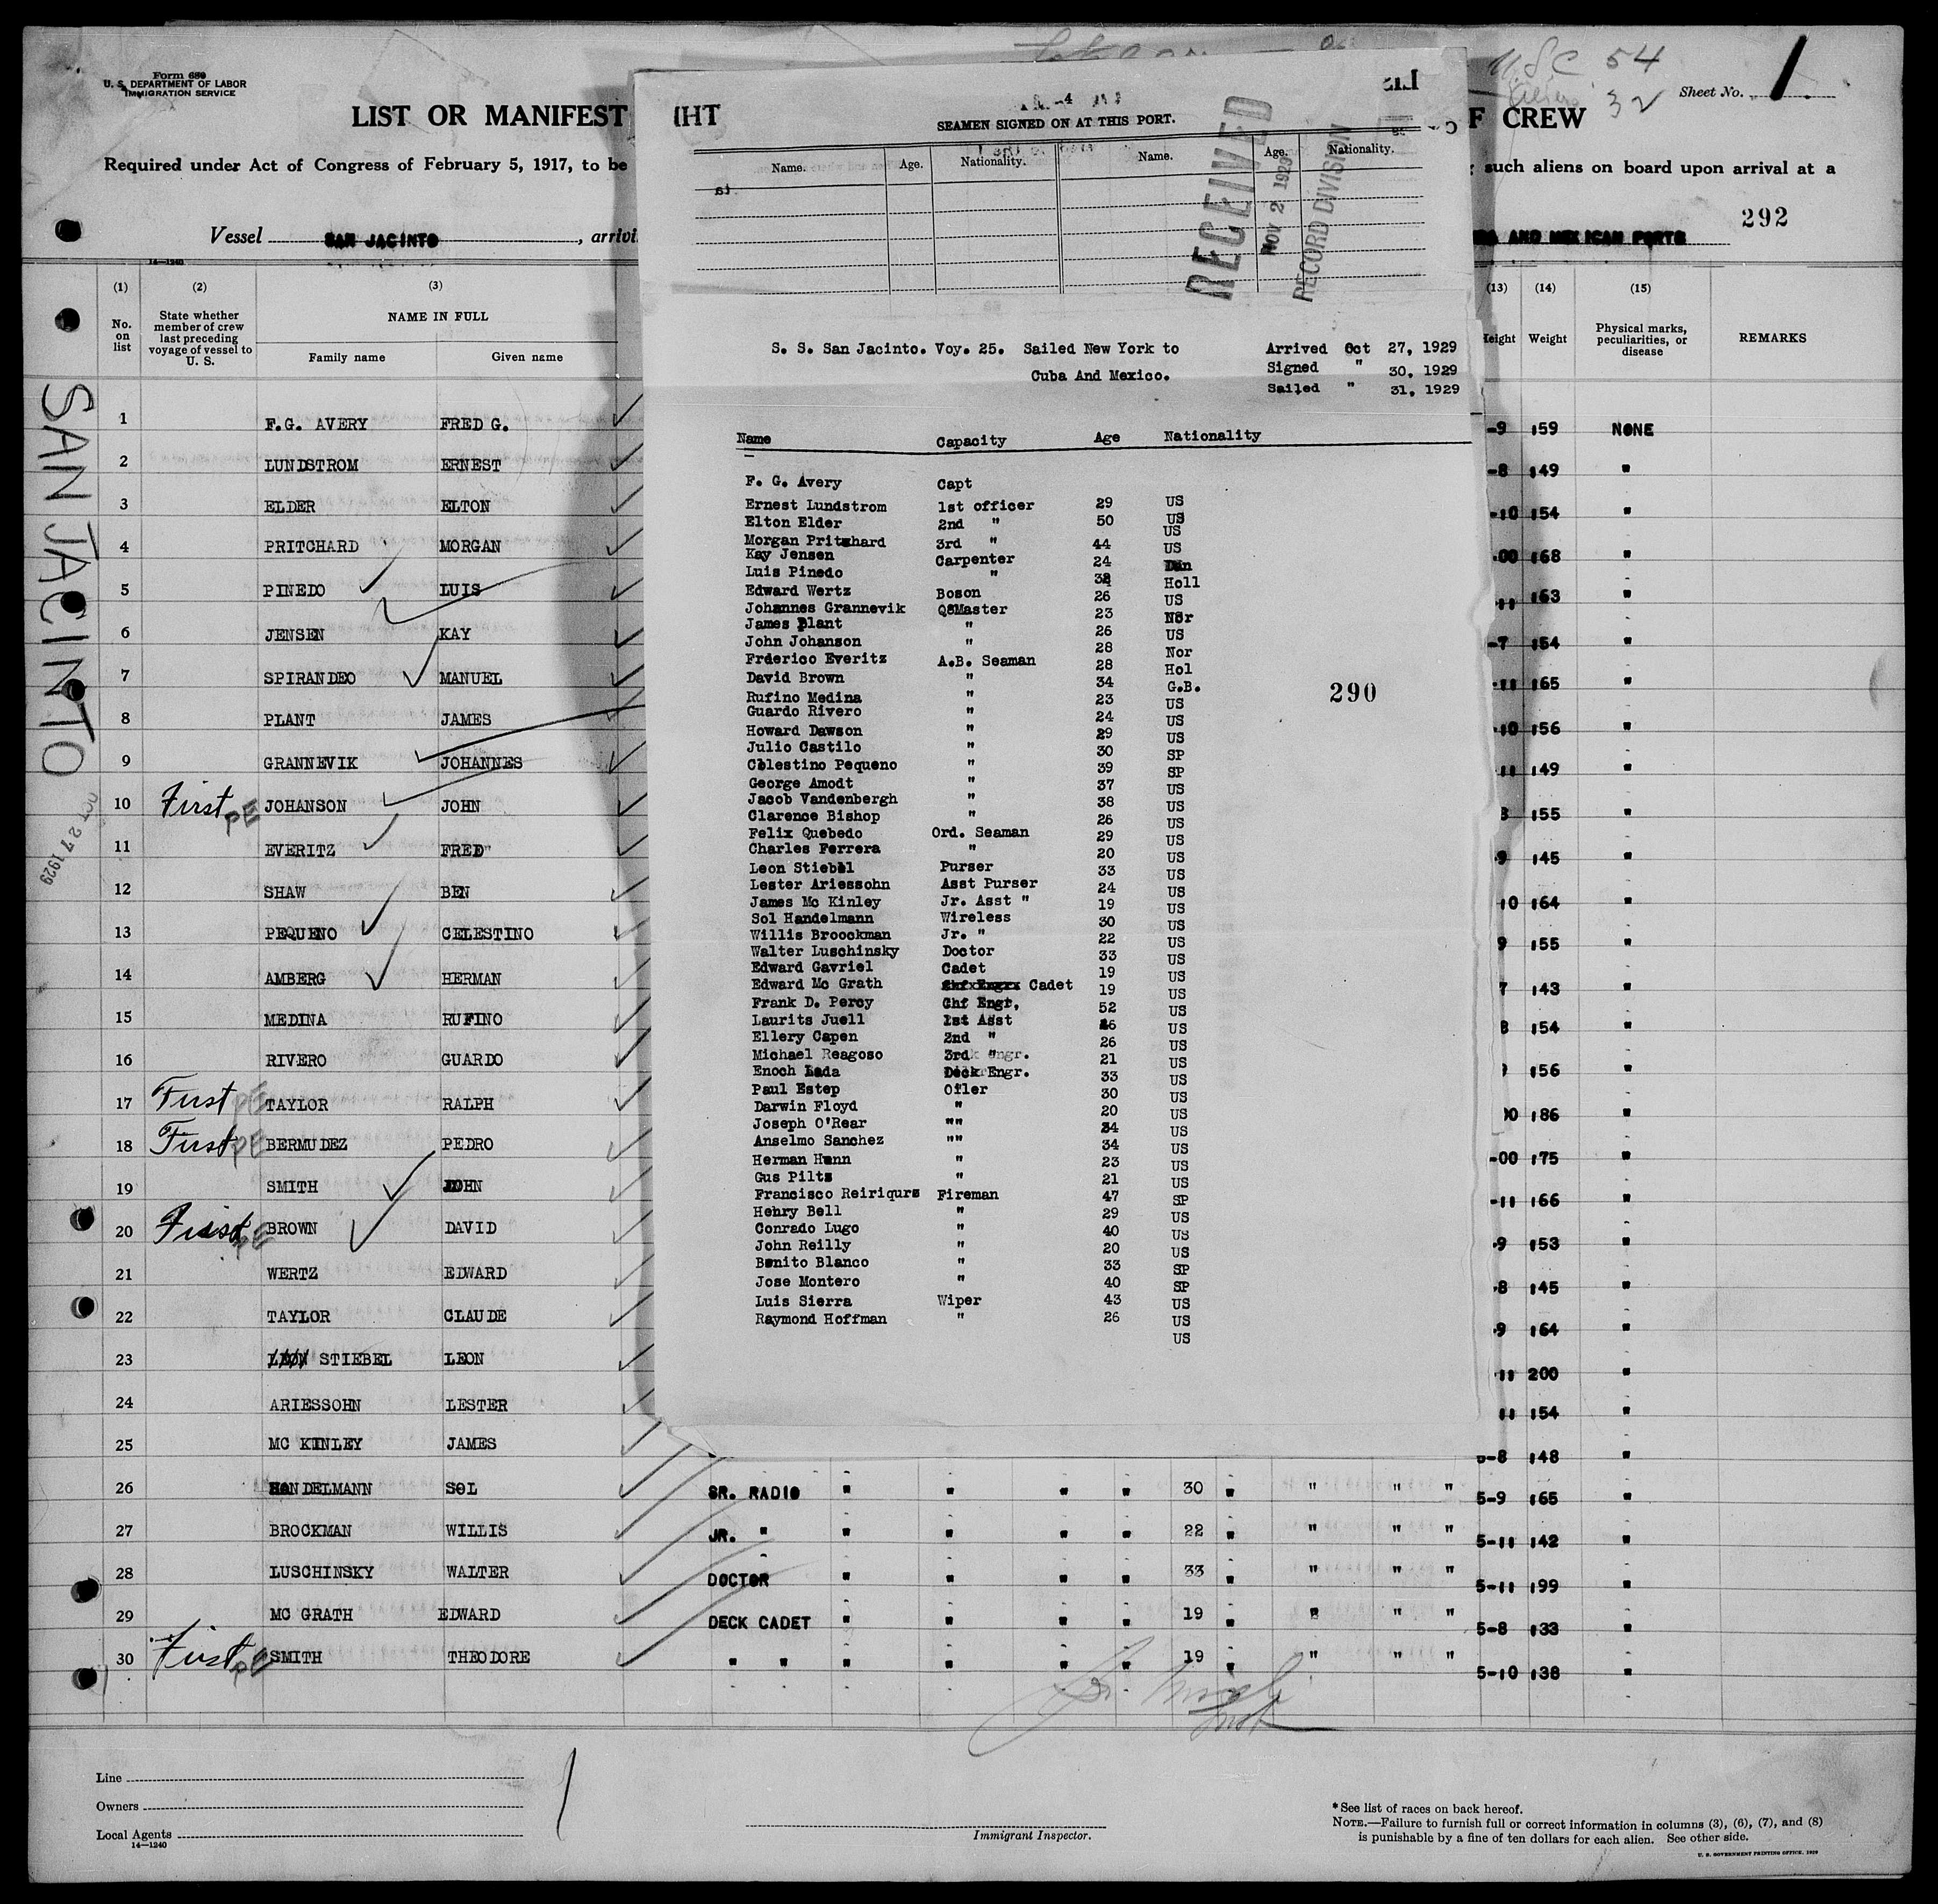 Form 680
U. S. DEPARTMENT OF LABOR
IMMIGRATION SERVICE
LIST OR MANIFEST
F CREW
54
32
Sheet No. 1.
Required under Act of Congress of February 5, 1917, to be
such aliens on board upon arrival at a
292
Vessel SAN JACINTO, arrivi
AND MEXICAN PORTS
14—1240
SAN JACINTO
OCT 27 1929
(1) (2) (3) (13) (14) (15)
No. on list
State whether member of crew last preceding voyage of vessel to U. S.
NAME IN FULL
Family name Given name
Height Weight Physical marks, peculiarities, or disease REMARKS
1 F.G. AVERY FRED G. -9 159 NONE
2 LUNDSTROM ERNEST -8 149 "
3 ELDER ELTON -10 154 "
4 PRITCHARD MORGAN -00 168 "
5 PINEDO LUIS 11 163 "
6 JENSEN KAY -7 154 "
7 SPIRANDEO MANUEL -11 165 "
8 PLANT JAMES 10 156 "
9 GRANNEVIK JOHANNES 11 149 "
10 First PE JOHANSON JOHN 8 155 "
11 EVERITZ FRED" 9 145 "
12 SHAW BEN 10 164 "
13 PEQUENO CELESTINO 9 155 "
14 AMBERG HERMAN 7 143 "
15 MEDINA RUFINO 8 154 "
16 RIVERO GUARDO 156 "
17 First PE TAYLOR RALPH 00 186 "
18 First PE BERMUDEZ PEDRO -00 175 "
19 SMITH JOHN -11 166 "
20 First PE BROWN DAVID -9 153 "
21 WERTZ EDWARD -8 145 "
22 TAYLOR CLAUDE -9 164 "
23 STIEBEL LEON 11 200 "
24 ARIESSOHN LESTER 11 154 "
25 MC KINLEY JAMES -8 148 "
26 HANDELMANN SOL SR. RADIO " " " " 30 " " " " 5-9 165 "
27 BROCKMAN WILLIS JR. " " " " " 22 " " " " 5-11 142 "
28 LUSCHINSKY WALTER DOCTOR " " " " 33 " " " " 5-11 199 "
29 MC GRATH EDWARD DECK CADET " " " " 19 " " " " 5-8 133 "
30 First PE SMITH THEODORE " " " " " " 19 " " " " 5-10 138 "
SEAMEN SIGNED ON AT THIS PORT.
Name. Age. Nationality. Name. Age. Nationality.
RECEIVED
NOV 2 1929
RECORD DIVISION
S. S. San Jacinto. Voy. 25. Sailed New York to
Cuba And Mexico.
Arrived Oct 27, 1929
Signed " 30, 1929
Sailed " 31, 1929
Name Capacity Age Nationality
F. G. Avery Capt
Ernest Lundstrom 1st officer 29 US
Elton Elder 2nd " 50 US
US
Morgan Pritzhard 3rd " 44 US
Kay Jensen Carpenter 24 Dan
Luis Pinedo " Holl
Edward Wertz Boson 26 US
Johannes Grannevik QSMaster 23 Nor
James Plant " 26 US
John Johanson " 28 Nor
Frderico Everitz A.B. Seaman 28 Hol
David Brown " 34 G.B.
Rufino Medina " 23 US
Guardo Rivero " 24 US
Howard Dawson " 29 US
Julio Castilo " 30 SP
Celestino Pequeno " 39 SP
George Amodt " 37 US
Jacob Vandenbergh " 38 US
Clarence Bishop " 26 US
Felix Quebedo Ord. Seaman 29 US
Charles Ferrera " 20 US
Leon Stiebel Purser 33 US
Lester Ariessohn Asst Purser 24 US
James Mc Kinley Jr. Asst " 19 US
Sol Handelmann Wireless 30 US
Willis Broockman Jr. " 22 US
Walter Luschinsky Doctor 33 US
Edward Gavriel Cadet 19 US
Edward Mc Grath Cadet 19 US
Frank D. Percy Chf Engr, 52 US
Laurits Juell 1st Asst US
Ellery Capen 2nd " 26 US
Michael Reagoso 3rd " 21 US
Enoch Lada Deck Engr. 33 US
Paul Estep Oiler 30 US
Darwin Floyd " 20 US
Joseph O'Rear "" 34 US
Anselmo Sanchez "" 34 US
Herman Hunn " 23 US
Gus Piltz " 21 US
Francisco Reiriqurs Fireman 47 SP
Henry Bell " 29 US
Conrado Lugo " 40 US
John Reilly " 20 US
Benito Blanco " 33 SP
Jose Montero " 40 SP
Luis Sierra Wiper 43 US
Raymond Hoffman " 26 US
US
290
Line
Owners
Local Agents
14—1240
Immigrant Inspector.
* See list of races on back hereof.
NOTE.—Failure to furnish full or correct information in columns (3), (6), (7), and (8)
is punishable by a fine of ten dollars for each alien. See other side.
U. S. GOVERNMENT PRINTING OFFICE, 1929